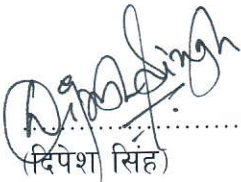 Dipesh Singh
....................
(दिपेश सिंह)